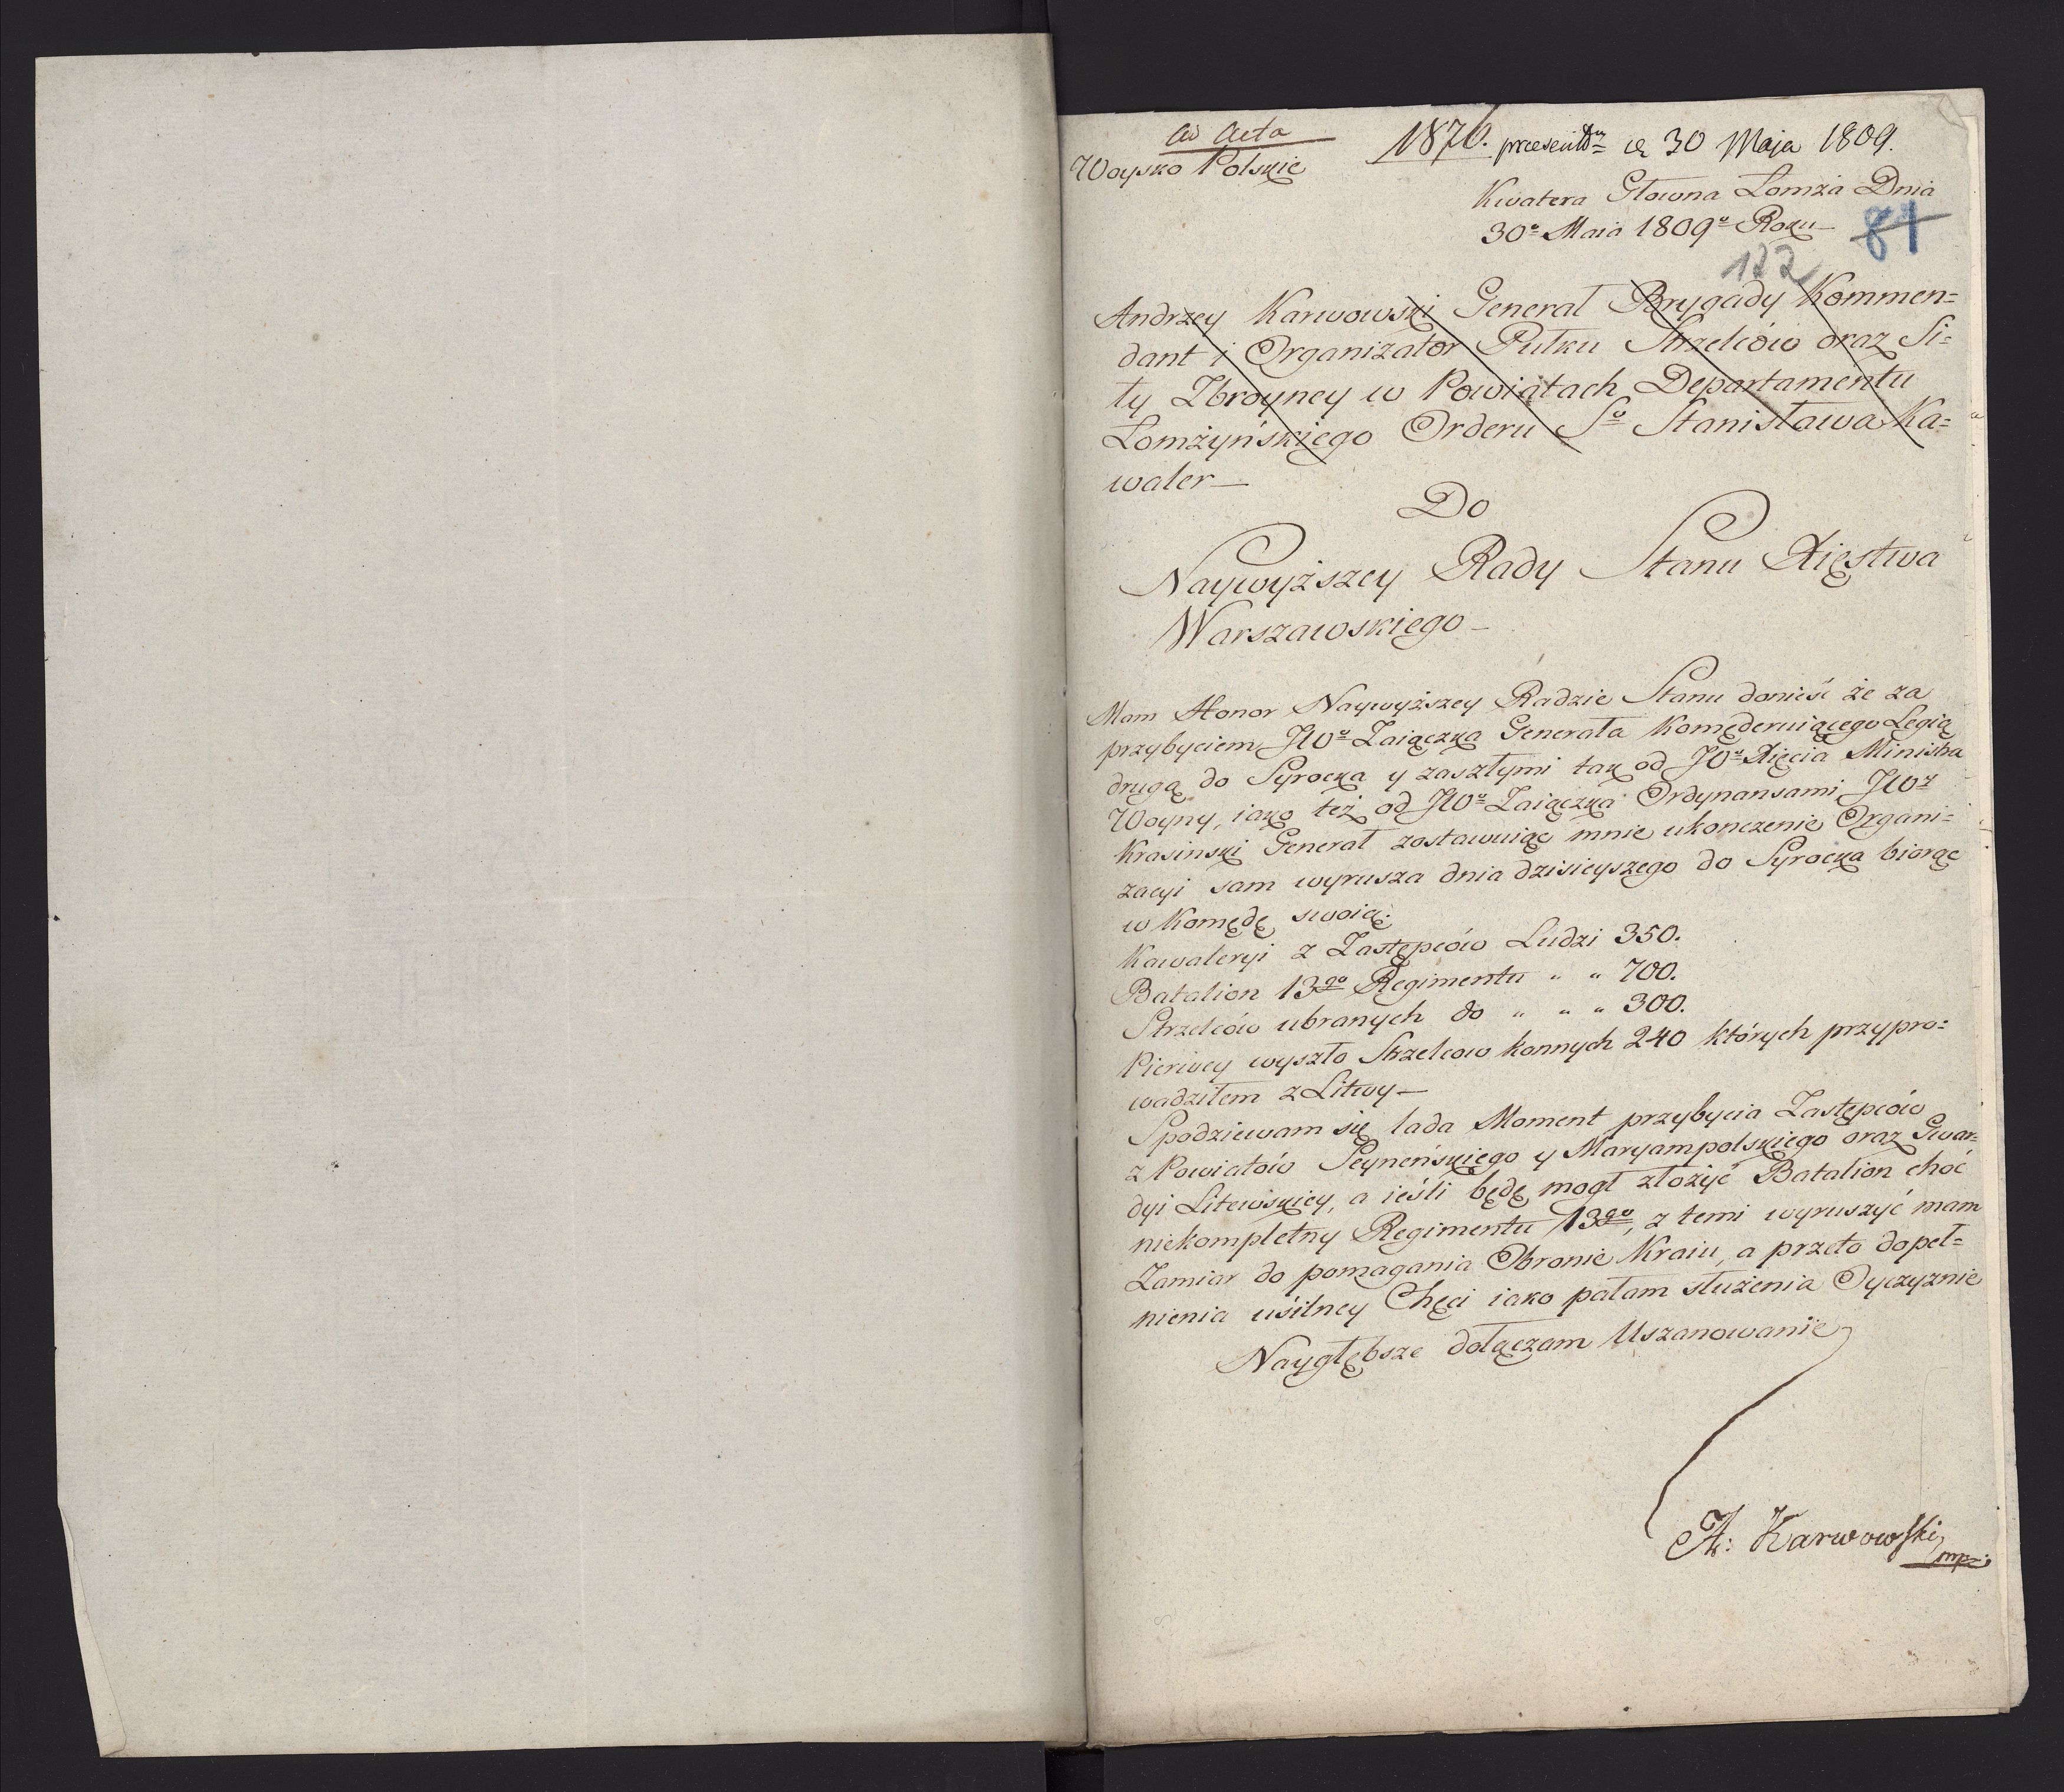 ad Acta
Woysko Polskie
1876. praesentm d. 30 Maja 1809.
Kwatera Głowna Łomża Dnia
30o Maia 1809o Roku
81
122
Andrzey Karwowski Generał Brygady Kommen=
dant i Organizator Pułku Strzelców oraz Si=
ły Zbroyney w Powiatach Departamentu
Łomżyńskiego Orderu So Stanisława Ka=
waler—
Do
Naywyższey Rady Stanu Xięstwa
Warszawskiego—
Mam Honor Naywyższey Radzie Stanu donieść że za
przybyciem JWo Zaiączka Generała Komęderuiącego Legią
drugą do Syrocka y zaszłymi tak od JOo Xięcia Ministra
Woyny, iako też od JWo Zaiączka Ordynansami JWy
Krasinski Generał zostawuiąc mnie ukonczenie Organi=
zacyi sam wyrusza dnia dzisieyszego do Syrocka biorąc
w Komędę swoią:
Kawaleryi z Zastępców Ludzi 350.
Batalion 13go Regimentu " " 700.
Strzelców ubranych do " " " 300.
Pierwey wyszło Strzelcow konnych 240 których przypro=
wadziłem z Litwy—
Spodziewam się lada Moment przybycia Zastępców
z Powiatów Seyneńskiego y Maryampolskiego oraz Gwar=
dyi Litewskiey, a ieśli będę mogł złożyć Batalion choć
niekompletny Regimentu 13go, z temi wyruszyć mam
Zamiar do pomagania Obronie Kraiu, a przeto dopeł=
nienia uśilney Chęci iako pałam służenia Oyczyznie
Naygłębsze dołączam Uszanowanie
A: Karwowski
mpr.